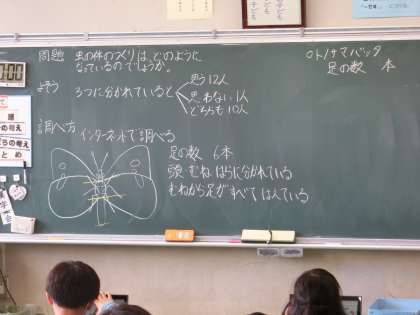 問題 虫の体のつくりは、どのように
なっているのでしょうか。
よそう 3つに分かれていると
思う 12人
思わない 1人
どちらも 10人
調べ方 インターネットで調べる
足の数 6本
頭 むね はらに分かれている
むねから足がすべてはえている
○トノサマバッタ
足の数 本
:00
題
の考え
ちの考え
とめ